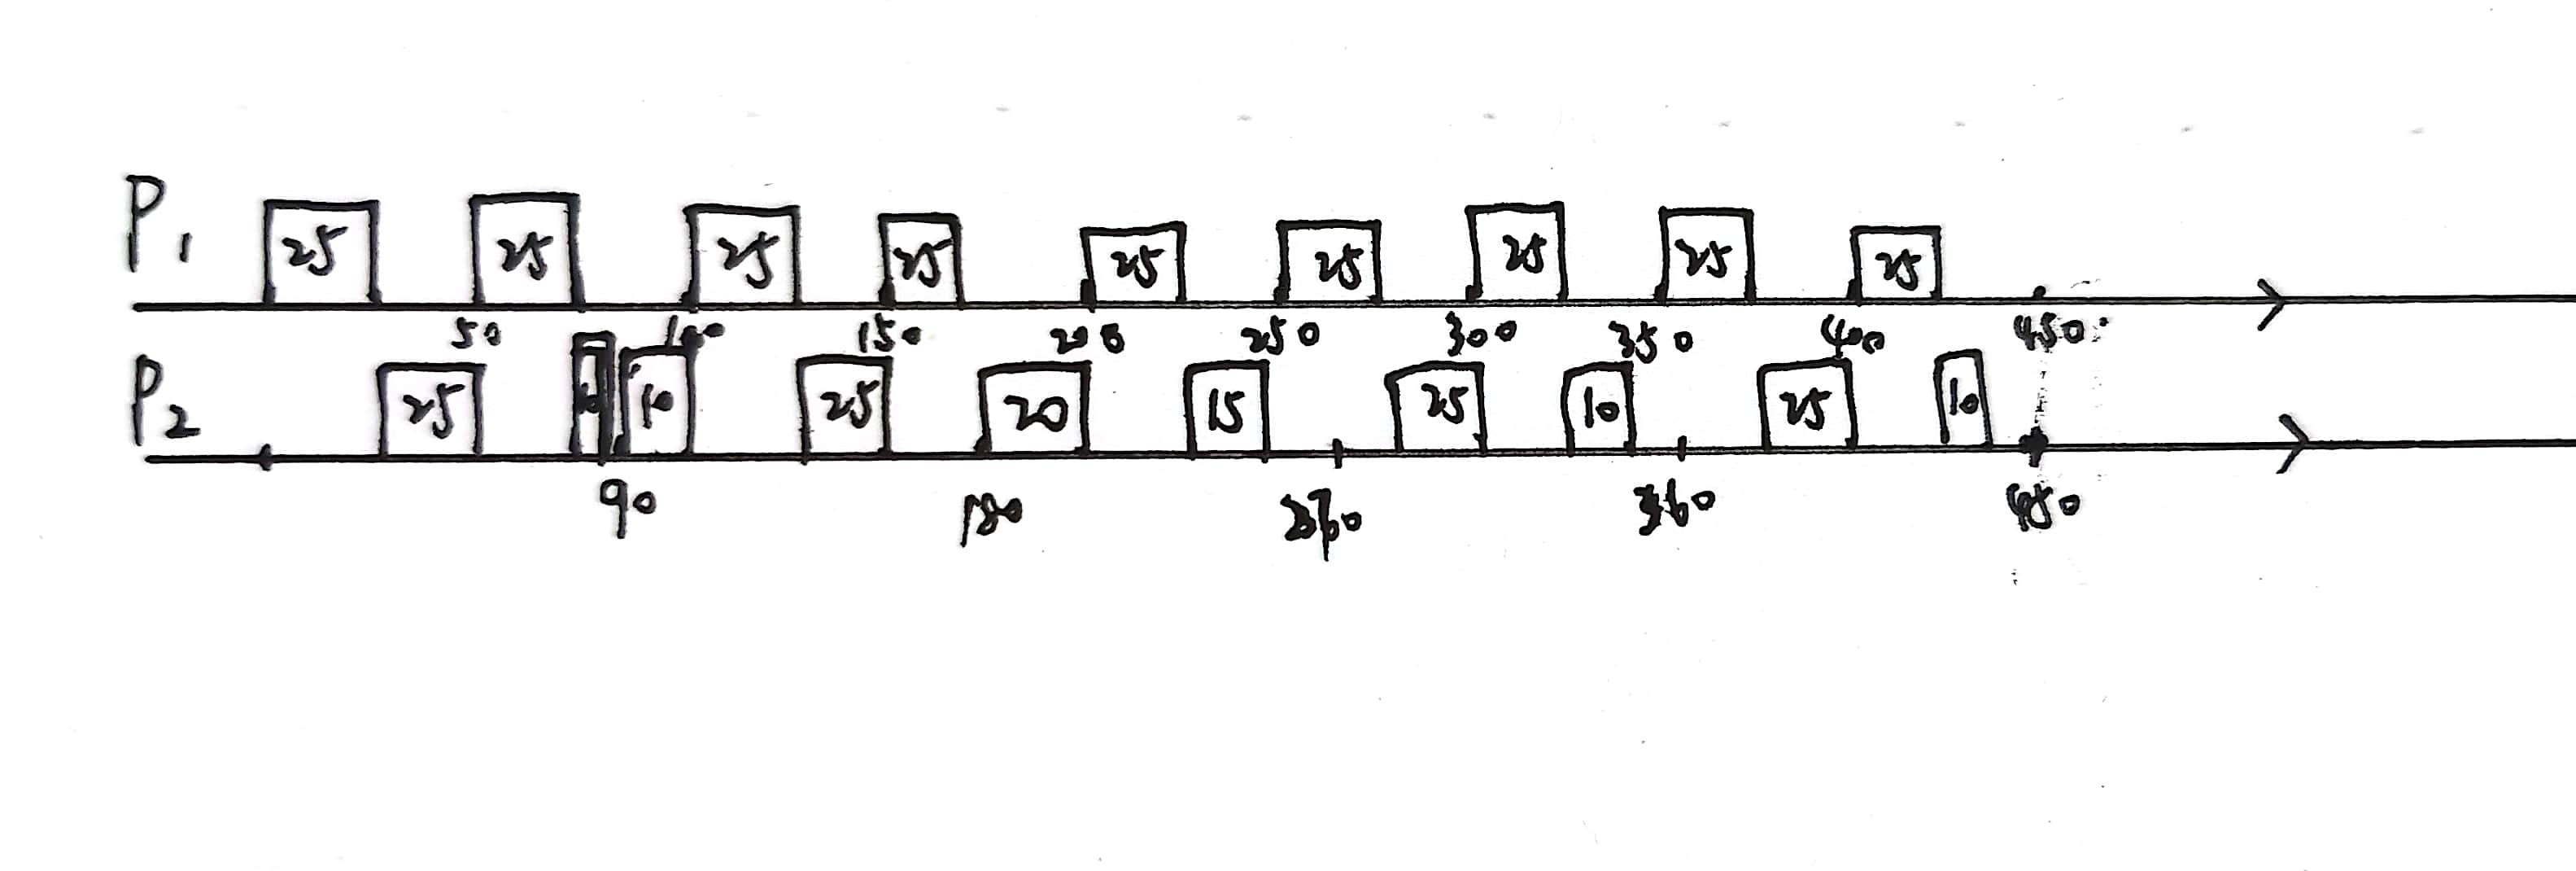 P1 25 25 25 25 25 25 25 25 25
50 100 150 200 250 300 350 400 450
P2 25 10 25 20 15 25 10 25 10
90 180 270 360 450